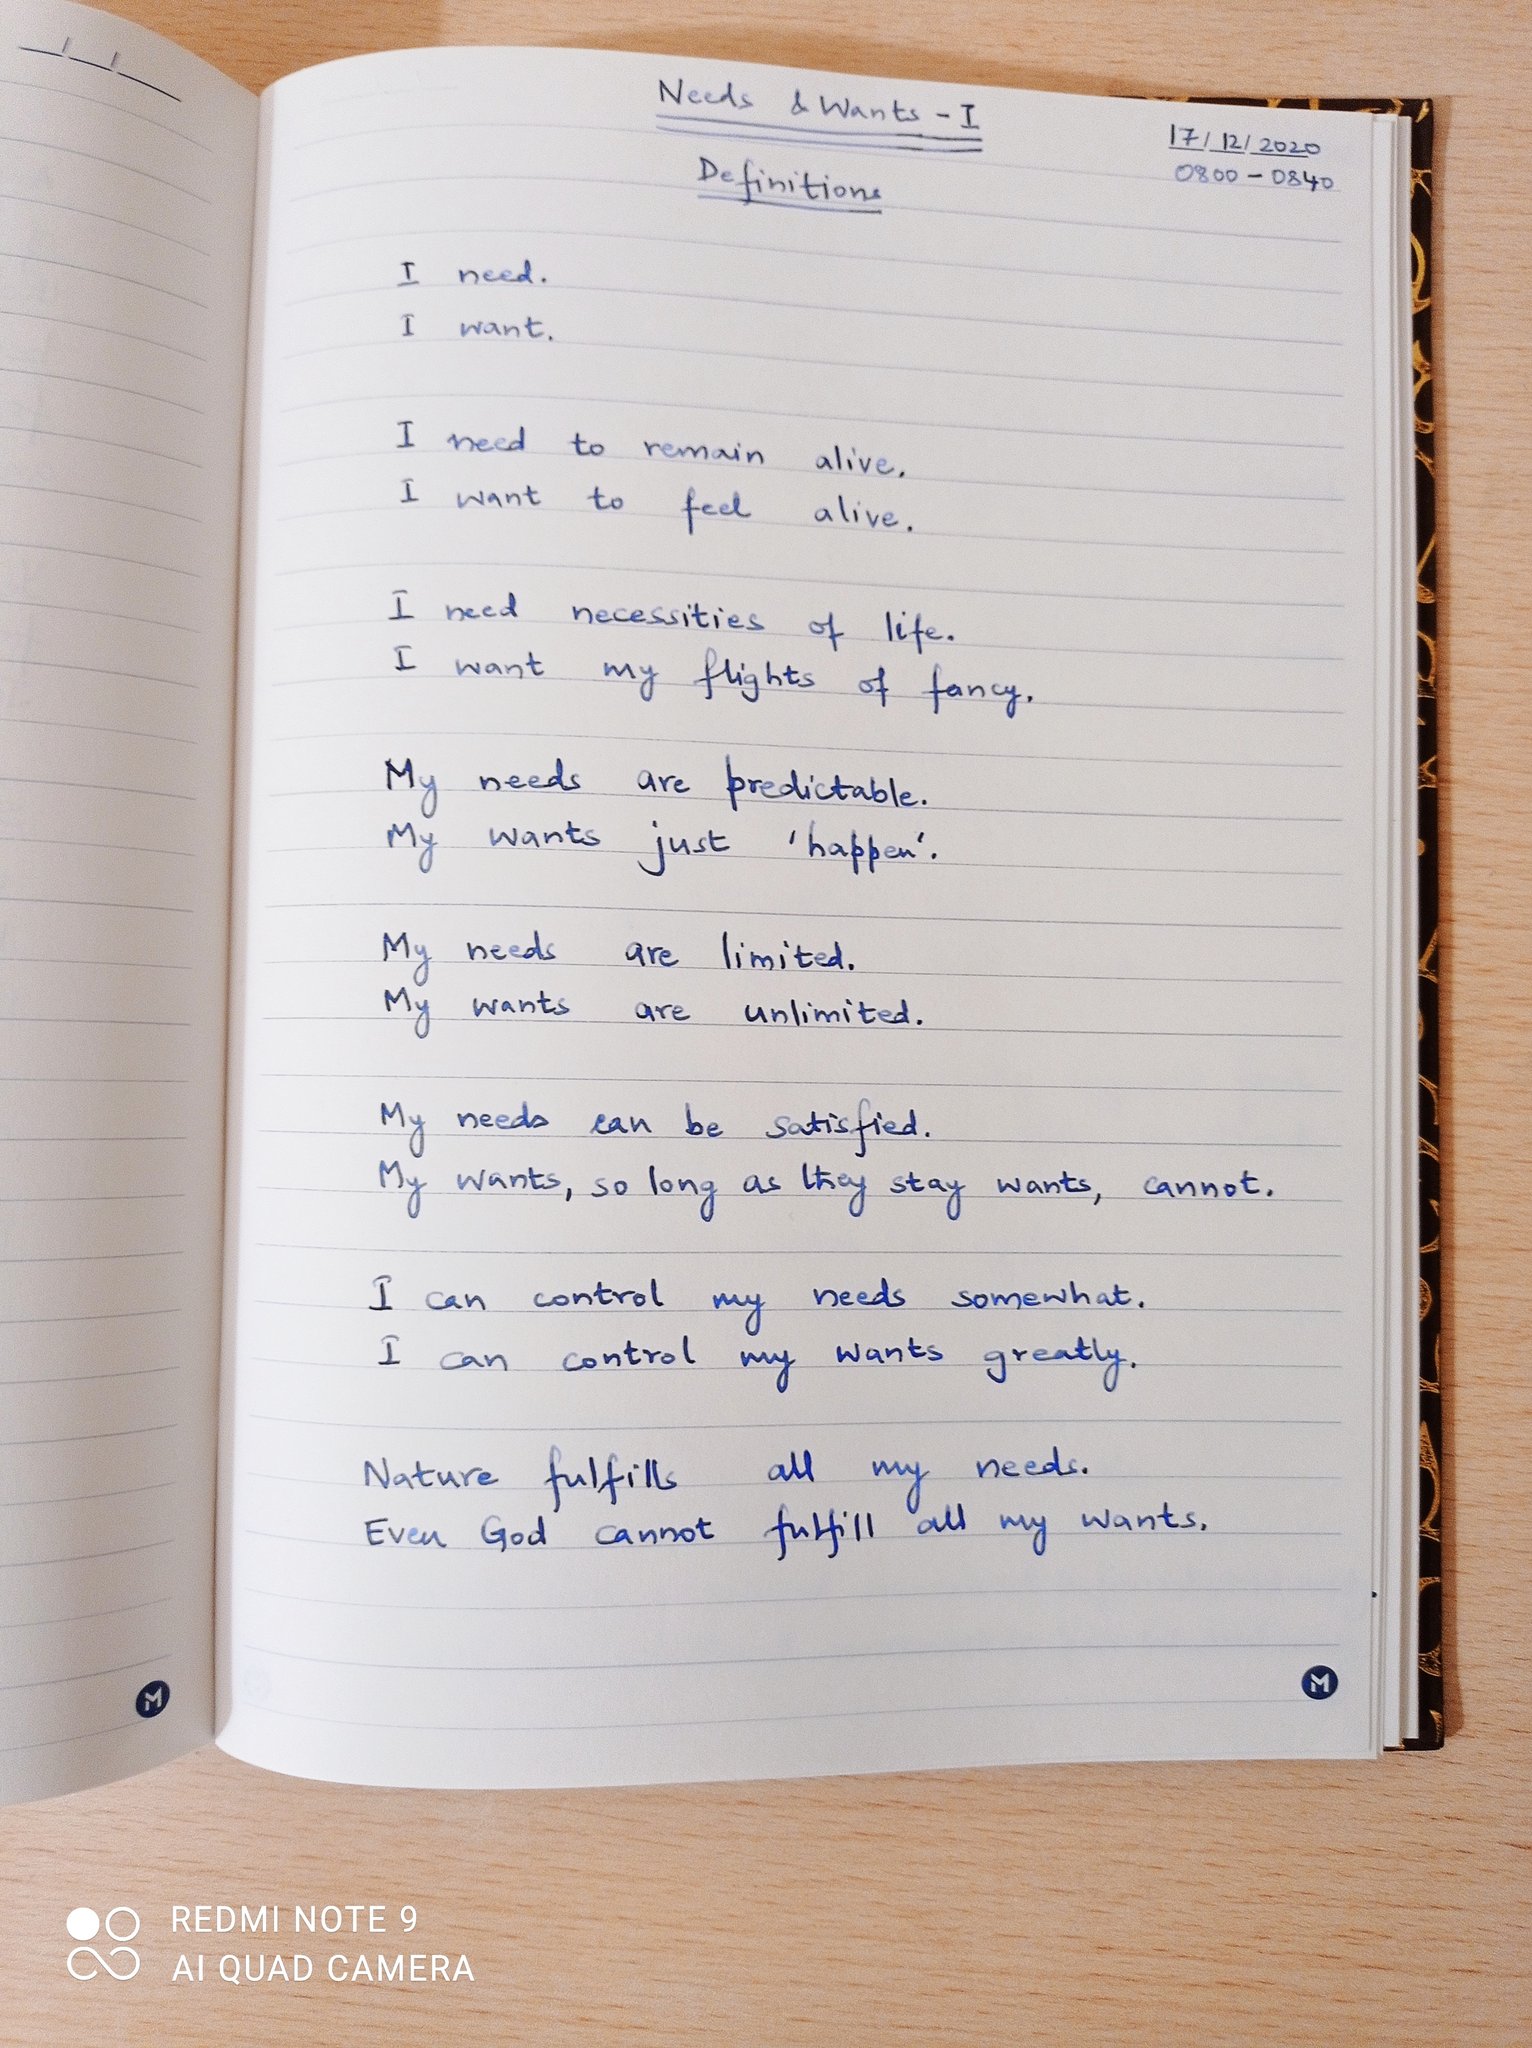 Needs & Wants - I
17/12/2020
0800 - 0840
Definitions
I need.
I want.
I need to remain alive.
I want to feel alive.
I need necessities of life.
I want my flights of fancy.
My needs are predictable.
My wants just 'happen'.
My needs are limited.
My wants are unlimited.
My needs can be satisfied.
My wants, so long as they stay wants, cannot.
I can control my needs somewhat.
I can control my wants greatly.
Nature fulfills all my needs.
Even God cannot fulfill all my wants.
M
M
REDMI NOTE 9
AI QUAD CAMERA